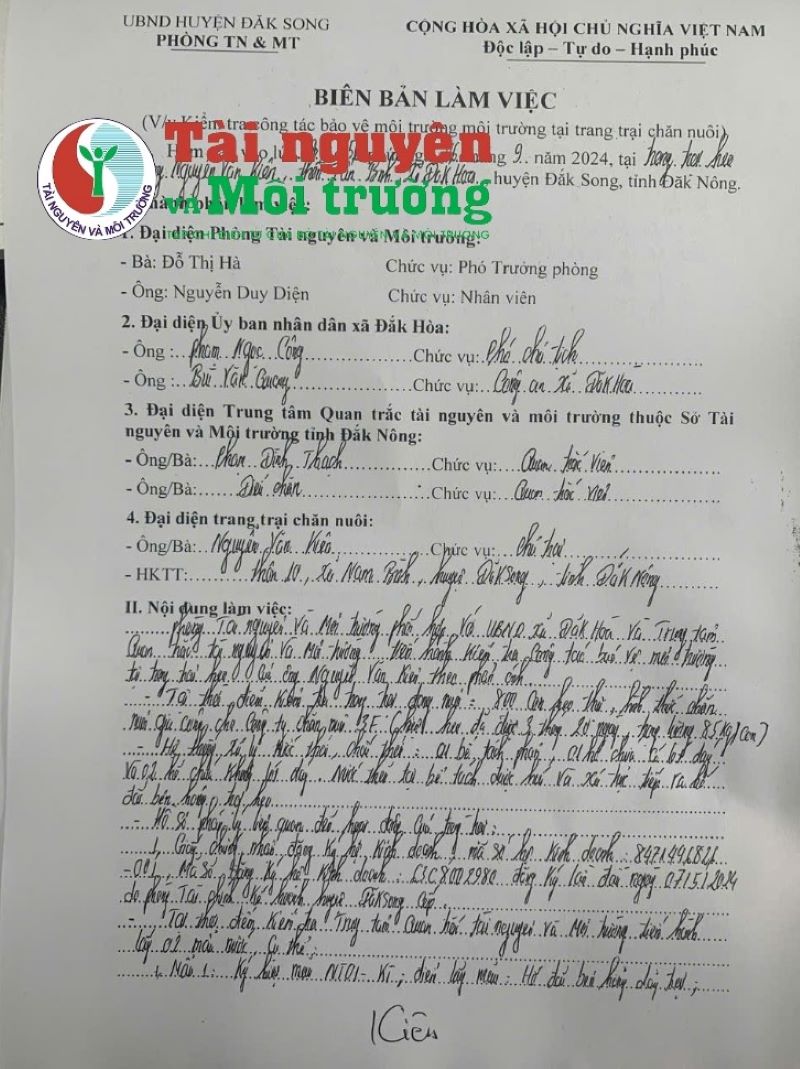 UBND HUYỆN ĐẮK SONG
PHÒNG TN & MT
CỘNG HÒA XÃ HỘI CHỦ NGHĨA VIỆT NAM
Độc lập – Tự do – Hạnh phúc
BIÊN BẢN LÀM VIỆC
(V/v Kiểm tra công tác bảo vệ môi trường môi trường tại trang trại chăn nuôi)
9. năm 2024, tại trang trại heo
Nguyễn Văn Kiên, thôn Tân Bình, xã Đắk Hòa, huyện Đắk Song, tỉnh Đăk Nông.
Tài nguyên
và Môi trường
TÀI NGUYÊN VÀ MÔI TRƯỜNG
làm việc:
1. Đại diện Phòng Tài nguyên và Môi trường:
- Bà: Đỗ Thị Hà Chức vụ: Phó Trưởng phòng
- Ông: Nguyễn Duy Diện Chức vụ: Nhân viên
2. Đại diện Ủy ban nhân dân xã Đắk Hòa:
- Ông :..Phạm Ngọc Công..............Chức vụ: Phó chủ tịch
- Ông :..Bùi Văn Cương..............Chức vụ:..Công an xã Đắk Hòa
3. Đại diện Trung tâm Quan trắc tài nguyên và môi trường thuộc Sở Tài
nguyên và Môi trường tỉnh Đắk Nông:
- Ông/Bà:..Phan Đình Thạch..............Chức vụ:..Quan trắc viên
- Ông/Bà:..............Chức vụ:..Quan trắc viên
4. Đại diện trang trại chăn nuôi:
- Ông/Bà:..Nguyễn Văn Kiên..............Chức vụ:..chủ trại
- HKTT:..thôn 10, xã Nam Bình, huyện Đắk Song, tỉnh Đắk Nông
II. Nội dung làm việc:
Phòng Tài nguyên và Môi trường phối hợp với UBND xã Đắk Hòa và Trung tâm
Quan trắc tài nguyên và Môi trường tiến hành kiểm tra công tác bảo vệ môi trường
tại trang trại heo của ông Nguyễn Văn Kiên theo phản ánh.
- Tại thời điểm kiểm tra trang trại đang nuôi: 800 con heo thịt, hình thức chăn
nuôi gia công cho Công ty chăn nuôi heo đã được 3 tháng 20 ngày, trọng lượng 85 kg/con)
- Hệ thống xử lý nước thải, chất thải: 01 bể tách phân, 01 hố chứa có lót đáy
và 02 hố chứa không lót đáy. Nước thải từ bể tách được hút và tiếp ra hố
đất bên hông trại heo
- Hồ sơ pháp lý liên quan đến hoạt động của trang trại:
1, Giấy chứng nhận đăng ký hộ kinh doanh mã số hộ kinh doanh: 8471441821
-001, Mã số đăng ký hộ kinh doanh: đăng ký lần đầu ngày 07/5/2024
do phòng Tài chính Kế hoạch huyện Đắk Song cấp.
- Tại thời điểm kiểm tra Trung tâm Quan trắc tài nguyên và Môi trường tiến hành
lấy 02 mẫu nước, cụ thể:
1, Mẫu 1: Ký hiệu mẫu NT01-Ki; điểm lấy mẫu: Hố đất bên hông dãy trại;
Kiên